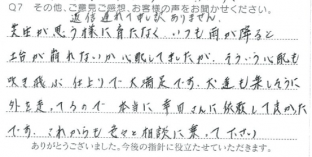 Q7 その他、ご意見ご感想、お客様の声をお聞かせください。
返信遅れて申し訳ありません。
芝生が思う様に育たなく、いつも雨が降ると
土台が崩れないか心配してましたが、そういう心配も
吹き飛ぶ仕上りで大満足です。犬達も楽しそうに
外を走ってるので本当に幸田さんに依頼して良かった
です。これからも色々と相談に乗って下さい
ありがとうございました。今後の指針に役立たせていただきます。